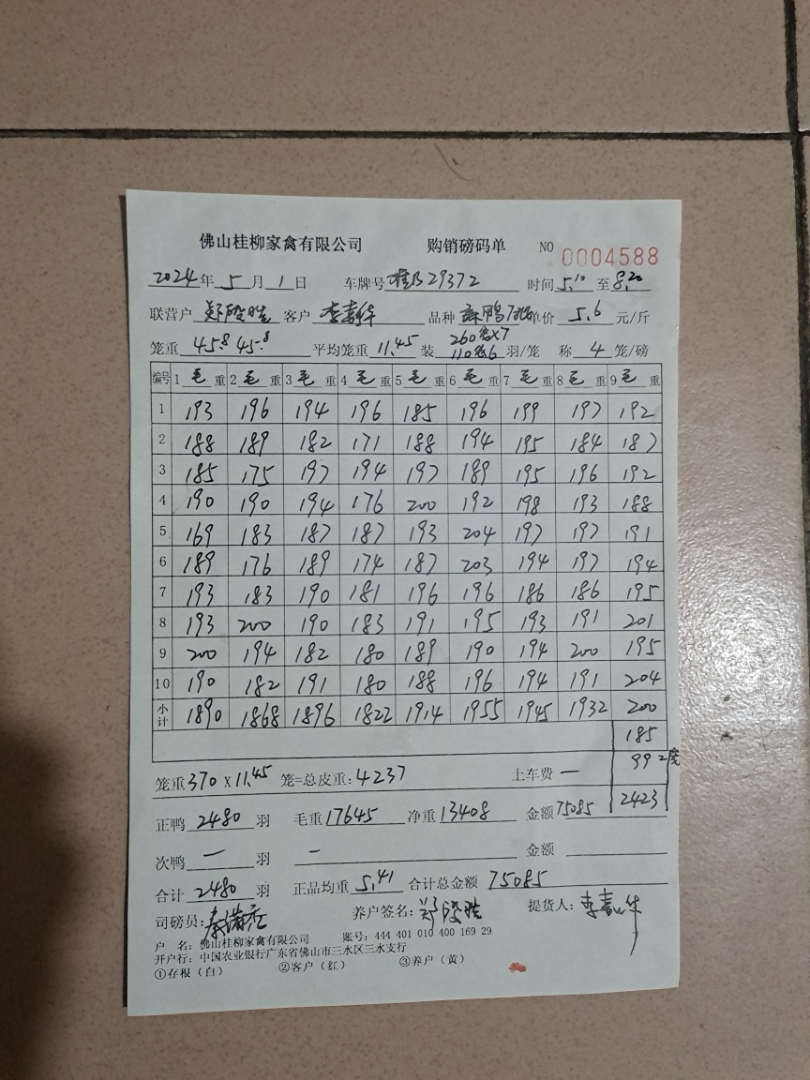 佛山桂柳家禽有限公司 购销磅码单 NO 0004588
2024年 5 月 1 日 车牌号 29372 时间 5.10 至 8.20
联营户 客户 李嘉华 品种 麻鸭 单价 5.6 元/斤
笼重 45.8 45.8 平均笼重 11.45 装 260笼x7 110笼6 羽/笼 称 4 笼/磅
编号 1 毛 重 2 毛 重 3 毛 重 4 毛 重 5 毛 重 6 毛 重 7 毛 重 8 毛 重 9 毛 重
1 193 196 194 196 185 196 199 197 192
2 188 189 182 171 188 194 195 184 187
3 185 175 197 194 197 189 195 196 192
4 190 190 194 176 200 192 198 193 188
5 169 183 187 187 193 204 197 197 191
6 189 176 189 174 187 203 194 197 194
7 193 183 190 181 196 196 186 186 195
8 193 200 190 183 191 195 193 191 201
9 200 194 182 180 189 190 194 200 195
10 190 182 191 180 188 196 194 191 204
小计 1890 1868 1896 1822 1914 1955 1945 1932 200
185
笼重 370 x 11.45 笼=总皮重: 4237 上车费 — 99 2笼
2423
正鸭 2480 羽 毛重 17645 净重 13408 金额 75085
次鸭 — 羽 — 金额
合计 2480 羽 正品均重 5.41 合计总金额 75085
司磅员: 养户签名: 提货人: 李嘉华
户 名: 佛山桂柳家禽有限公司 账号: 444 401 010 400 169 29
开户行: 中国农业银行广东省佛山市三水区三水支行
①存根（白） ②客户（红） ③养户（黄）